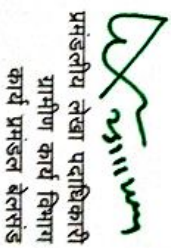 प्रमंडलीय लेखा पदाधिकारी
ग्रामीण कार्य विभाग
कार्य प्रमंडल बेलसंड